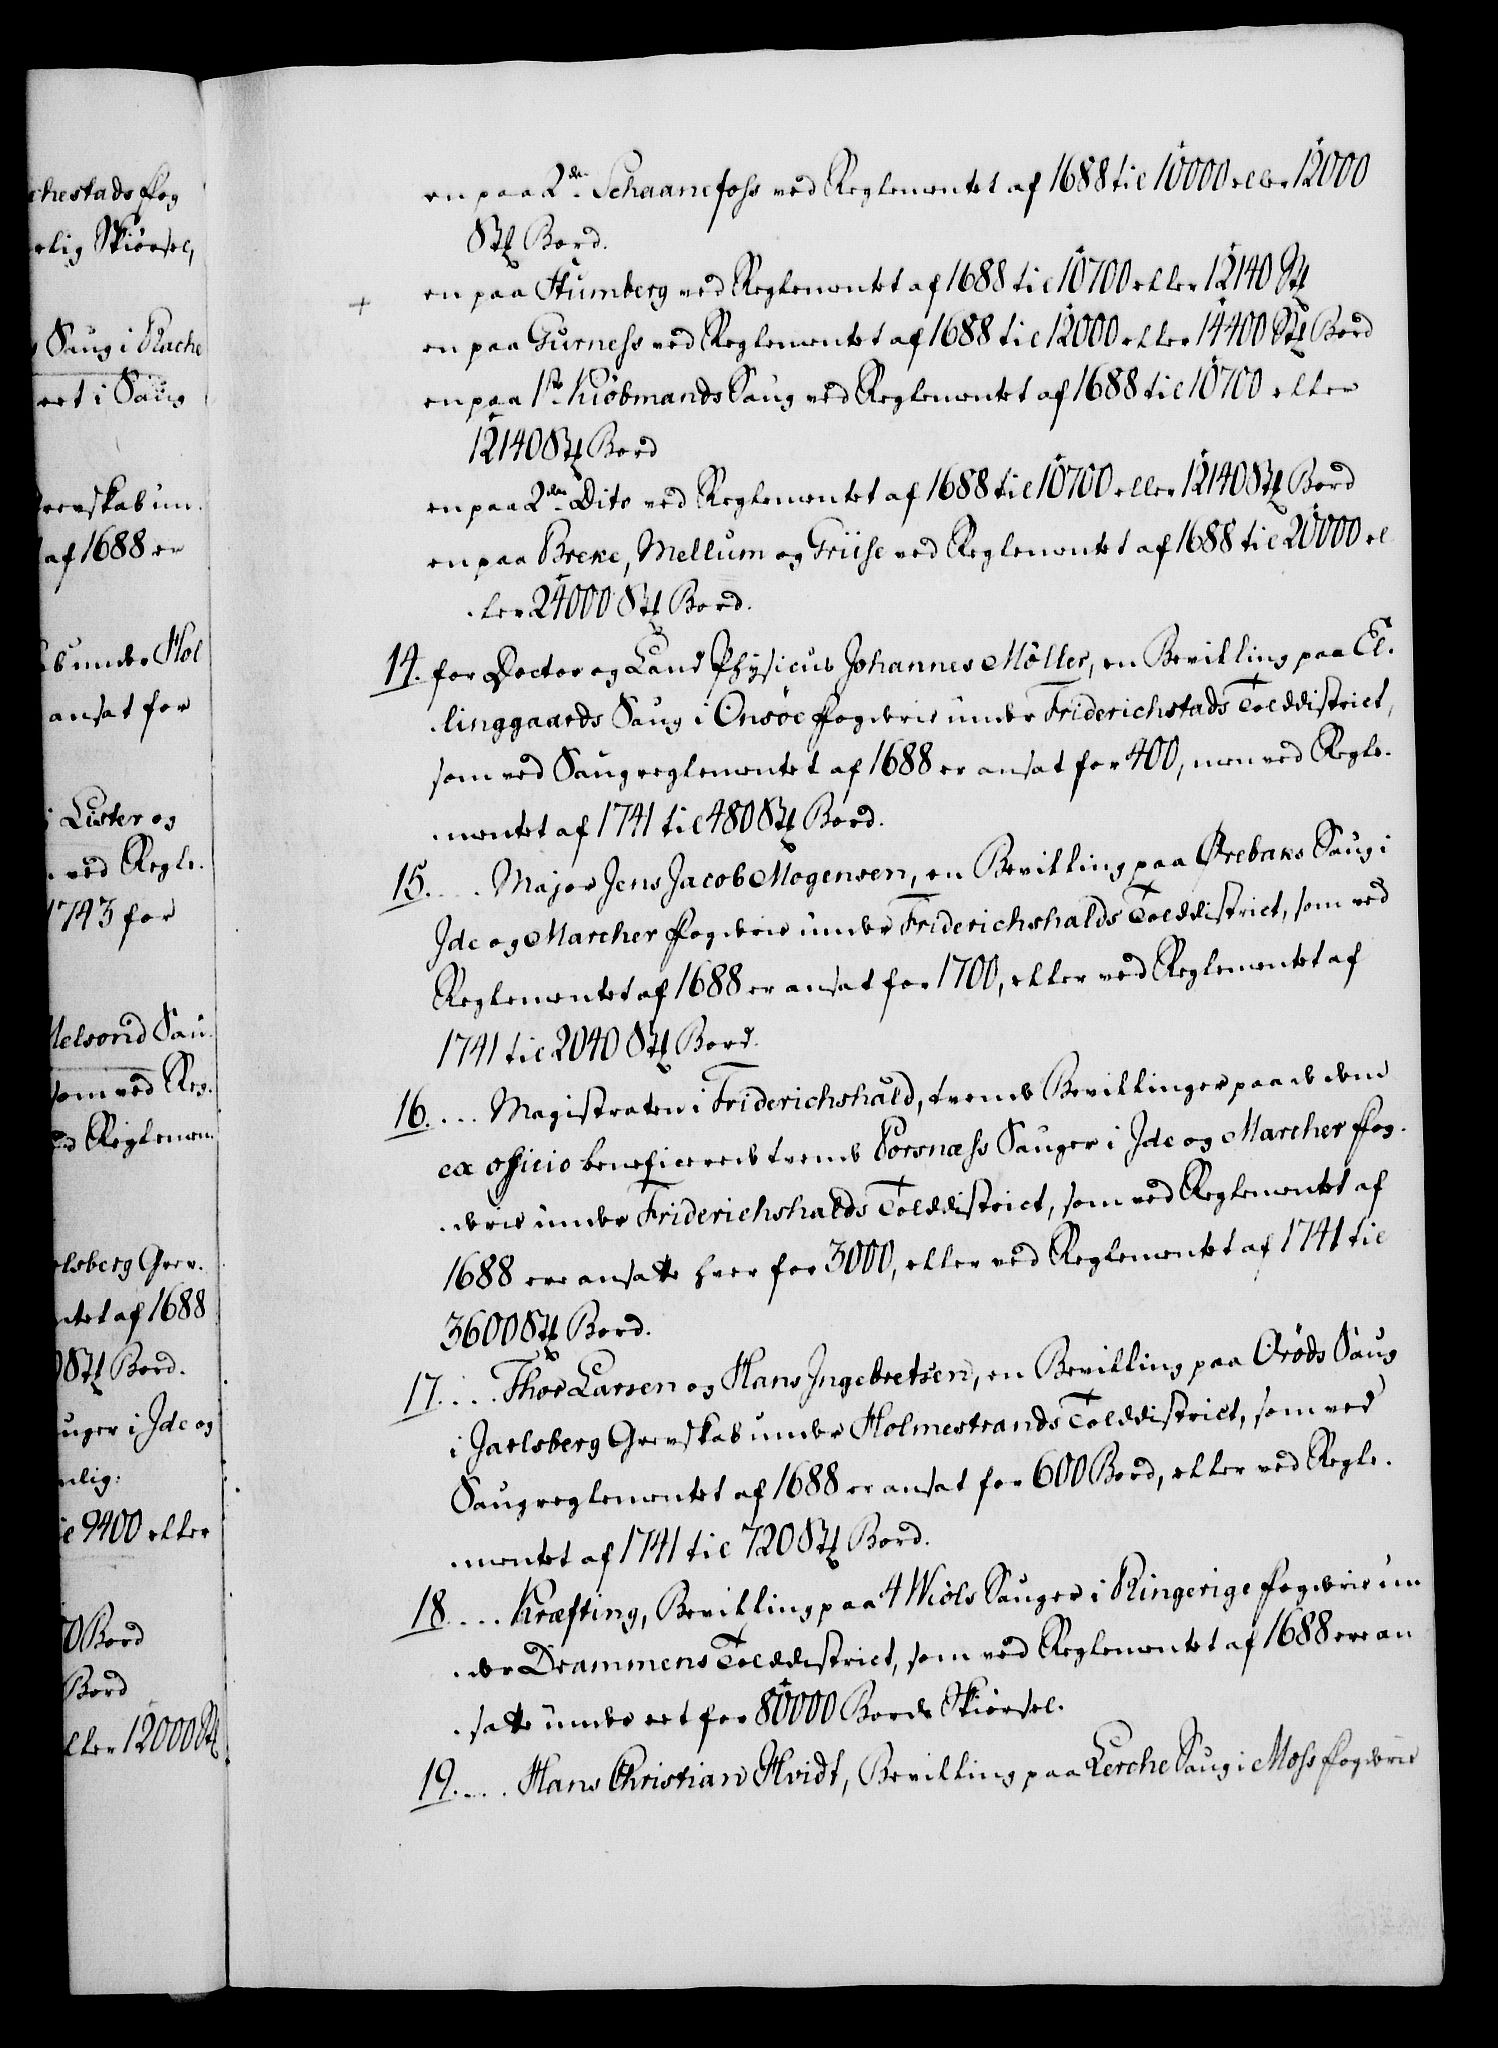 chestads fog
rlig Skiørsel,
Saug i Rache
eet i Saug
revskab un.
af 1688 er
under Hol
ansat for
i Lister og
ved Regle.
1743 for
Melsom Sau.
som ved Reg.
Reglemen.
rlsberg Grev.
ntet af 1688
Stk Bord.
auger i Jde og
nlig:
9400 eller
0 Bord
Bord
eller 12000 Stk
en paa 2de. Schaanefoss ved Reglementet af 1688 til 10000 eller 12000
Stk Bord.
en paa Stumberg ved Reglementet af 1688 til 10700 eller 12140 Stk
en paa Gurness ved Reglementet af 1688 til 12000 eller 14400 Stk Bord
en paa 1ste Kiöbmands Saug ved Reglementet af 1688 til 10700 eller
12140 Stk Bord
en paa 2den Dito ved Reglementet af 1688 til 10700 eller 12140 Stk Bord
en paa Breke, Mellum og Griise ved Reglementet af 1688 til 20000 el
.ler 24000 Stk Bord.
14. for Doctor og Land Physicus Johannes Möller, en Bevilling paa El.
.linggaards Saug i Onsöe Fogderie under Friderichstads Tolddistrict,
som ved Saugreglementet af 1688 er ansat for 400, men ved Regle.
.mentet af 1741 til 480 Stk Bord.
15. ... Major Jens Jacob Mogensen, en Bevilling paa Ørebaks Saug i
Jde og Marcher Fogderie under Friderichshalds Tolddistrict, som ved
Reglementet af 1688 er ansat for 1700, eller ved Reglementet af
1741 til 2040 Stk Bord.
16. ... Magistraten i Friderichshald, tvende Bevillinger paa de dem
ex officio beneficerede tvende Porsnæss Sauger i Jde og Marcher Fog.
.derie under Friderichshalds Tolddistrict, som ved Reglementet af
1688 ere ansatte hver for 3000, eller ved Reglementet af 1741 til
3600 Stk Bord.
17. ... Thor Larsen og Hans Jngebretsen, en Bevilling paa Oröds Saug
i Jarlsberg Grevskab under Holmestrands Tolddistrict, som ved
Saugreglementet af 1688 er ansat for 600 Bord, eller ved Regle.
.mentet af 1741 til 720 Stk Bord.
18. ... Kræfting, Bevilling paa 4 Viöls Sauger i Ringerige Fogderie un
.der Drammens Tolddistrict, som ved Reglementet af 1688 ere an
.satte under eet for 80000 Bords Skiørsel.
19. ... Hans Christian Hvidt, Bevilling paa Lerche Saug i Moss Fogderie